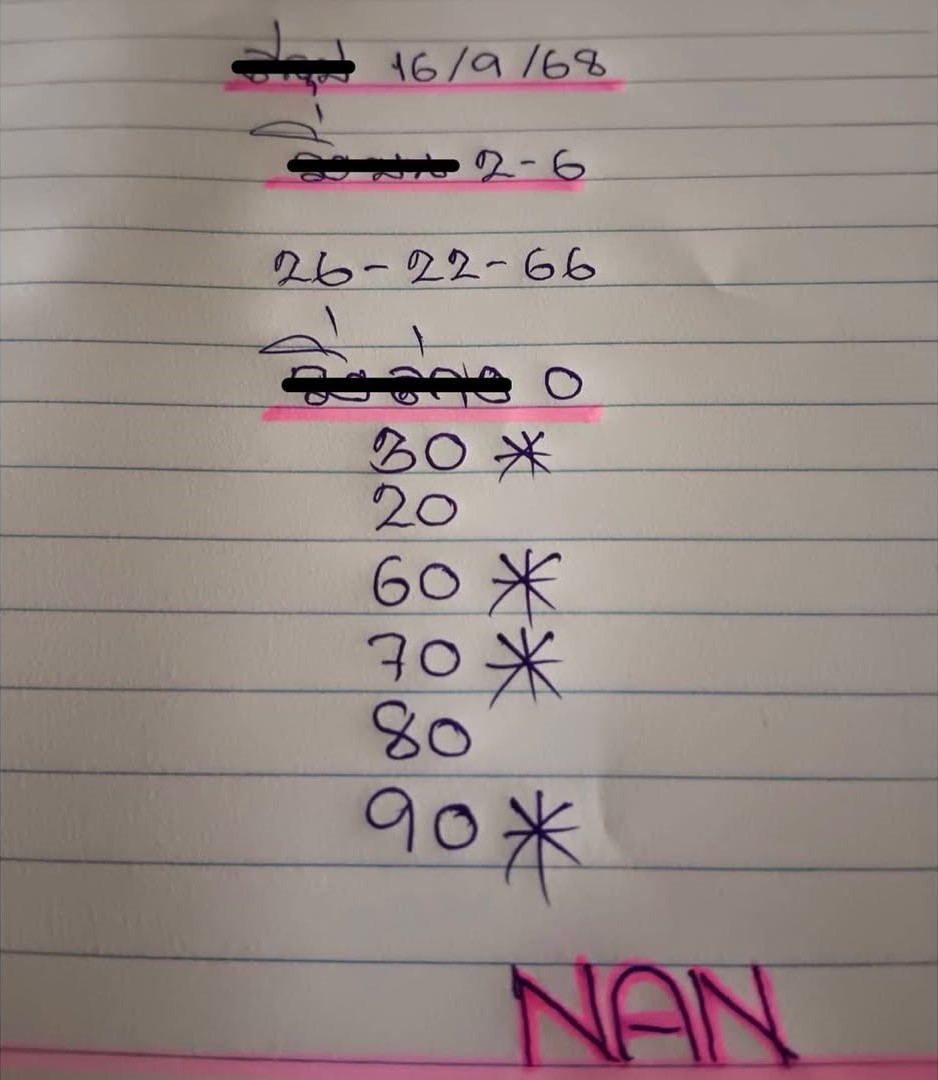 16/9/68
2-6
26-22-66
0
30 *
20
60 *
70 *
80
90 *
NAN